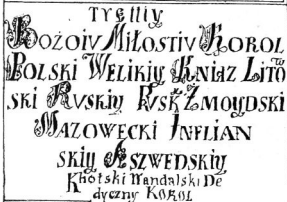 TYGIIIY
BOŻOIV MIŁOSTIV KOROL
POLSKI WELIKIY KNIAZ LITO
SKI RVSKIY PVSK ŻMOYDSKI
MAZOWECKI INFLIAN
SKIY ASZWEDSKIY
Khotski Wandalski De
dyczny KOROL